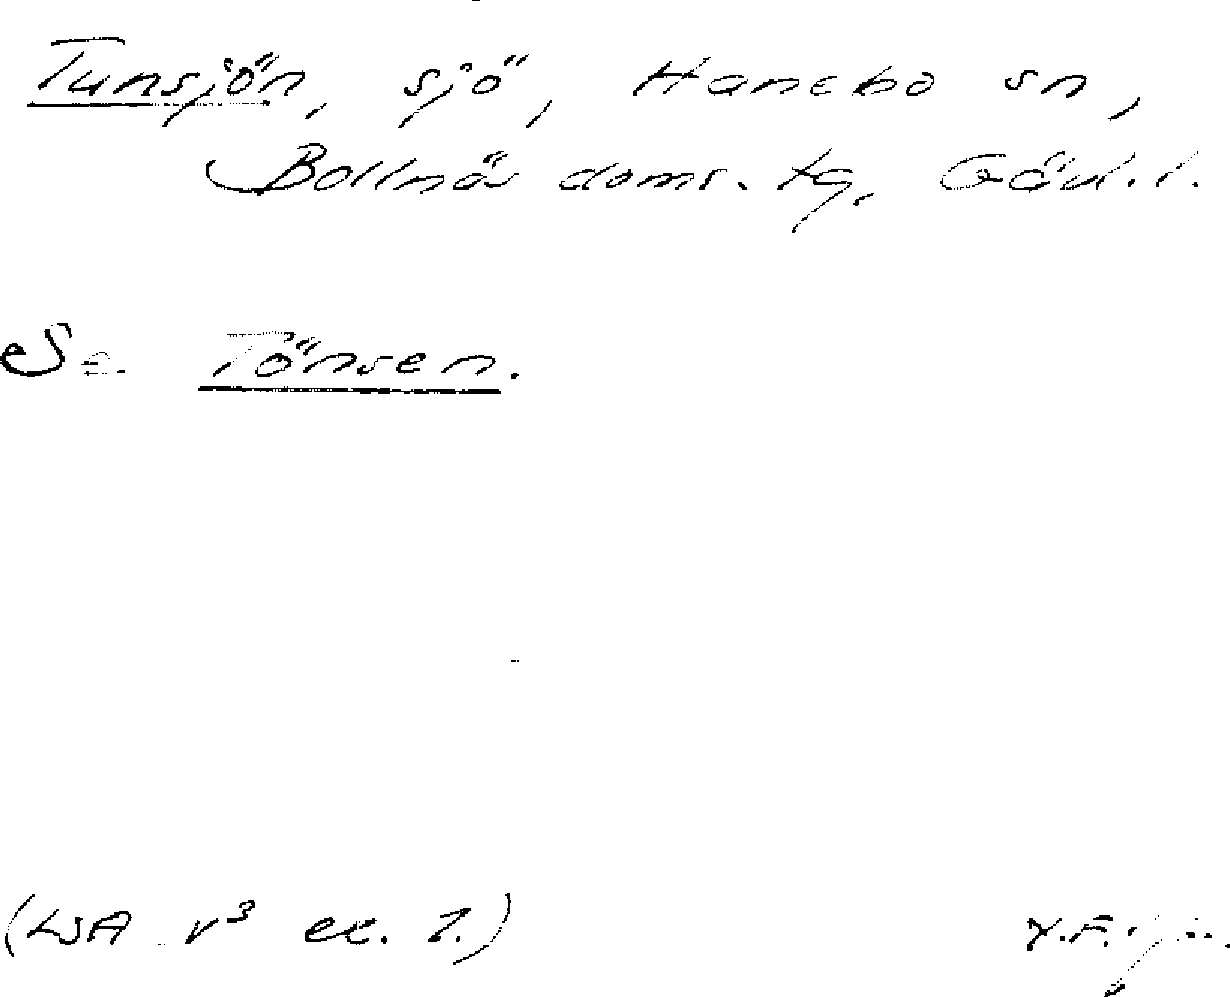 Tunsjön, sjö, Hanebo sn,
Bollnäs doms. tg, Gävl. l.
Se Tönsen.
(LSA V³